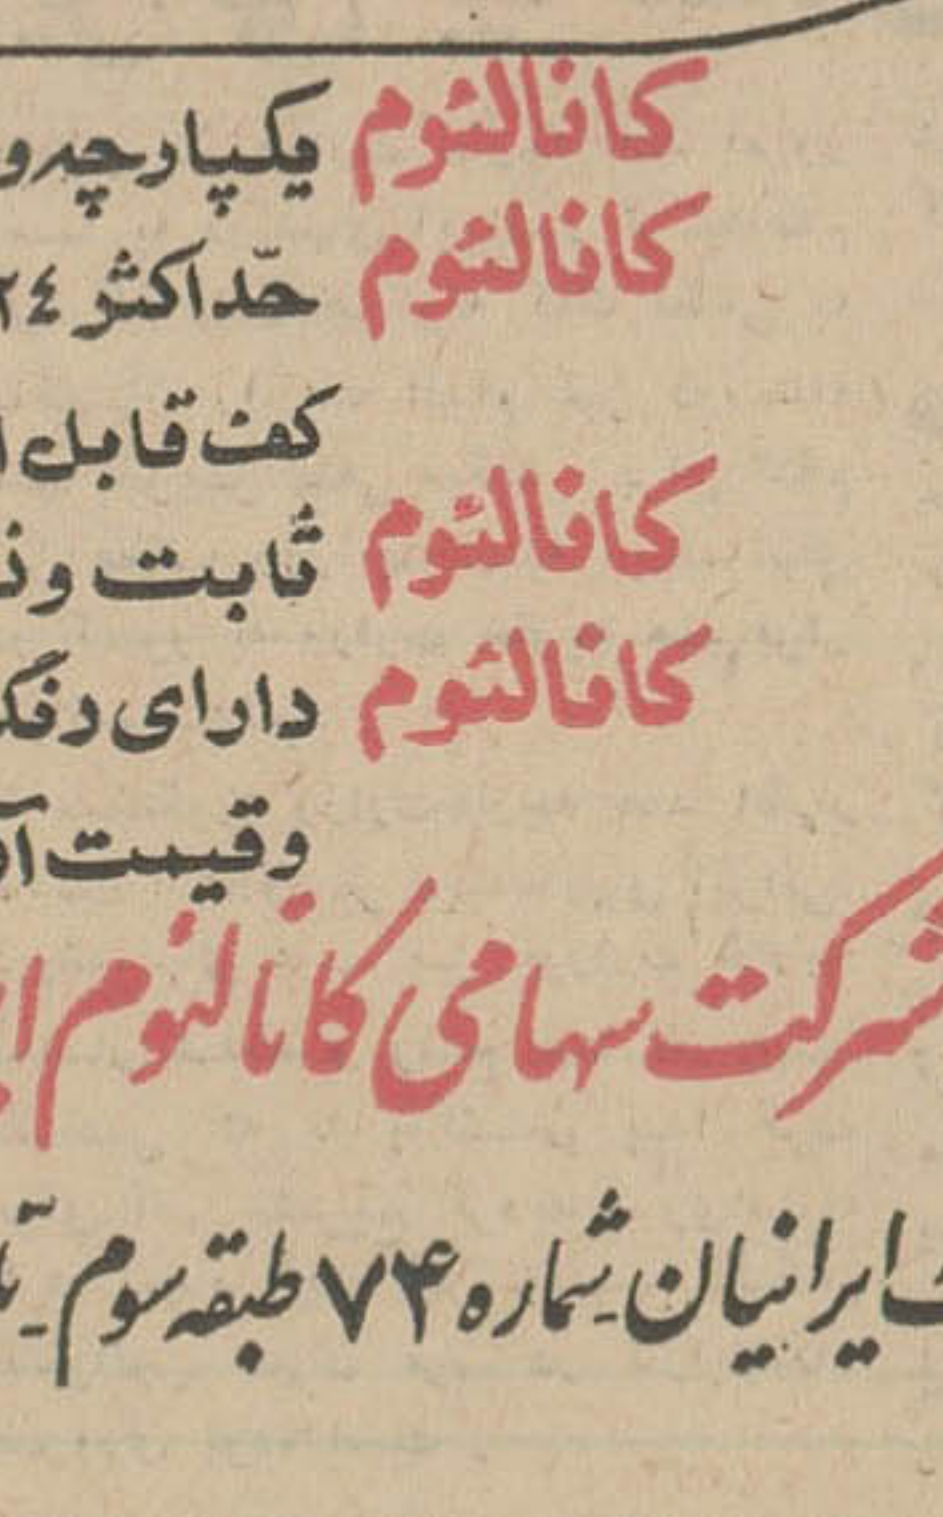 کانالئوم یکپارچه و
کانالئوم حدّاکثر ۲٤
کف قابل
کانالئوم ثابت و
کانالئوم دارای
و قیمت
شرکت سهامی کانالئوم
ایرانیان ـ شماره ۷۴ طبقه سوم ـ